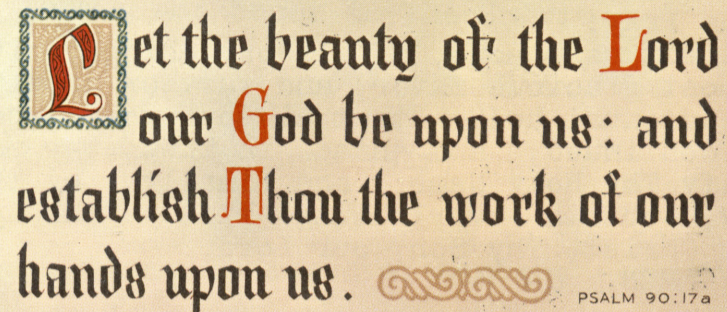 Let the beauty of the Lord
our God be upon us: and
establish Thou the work of our
hands upon us.
PSALM 90:17a